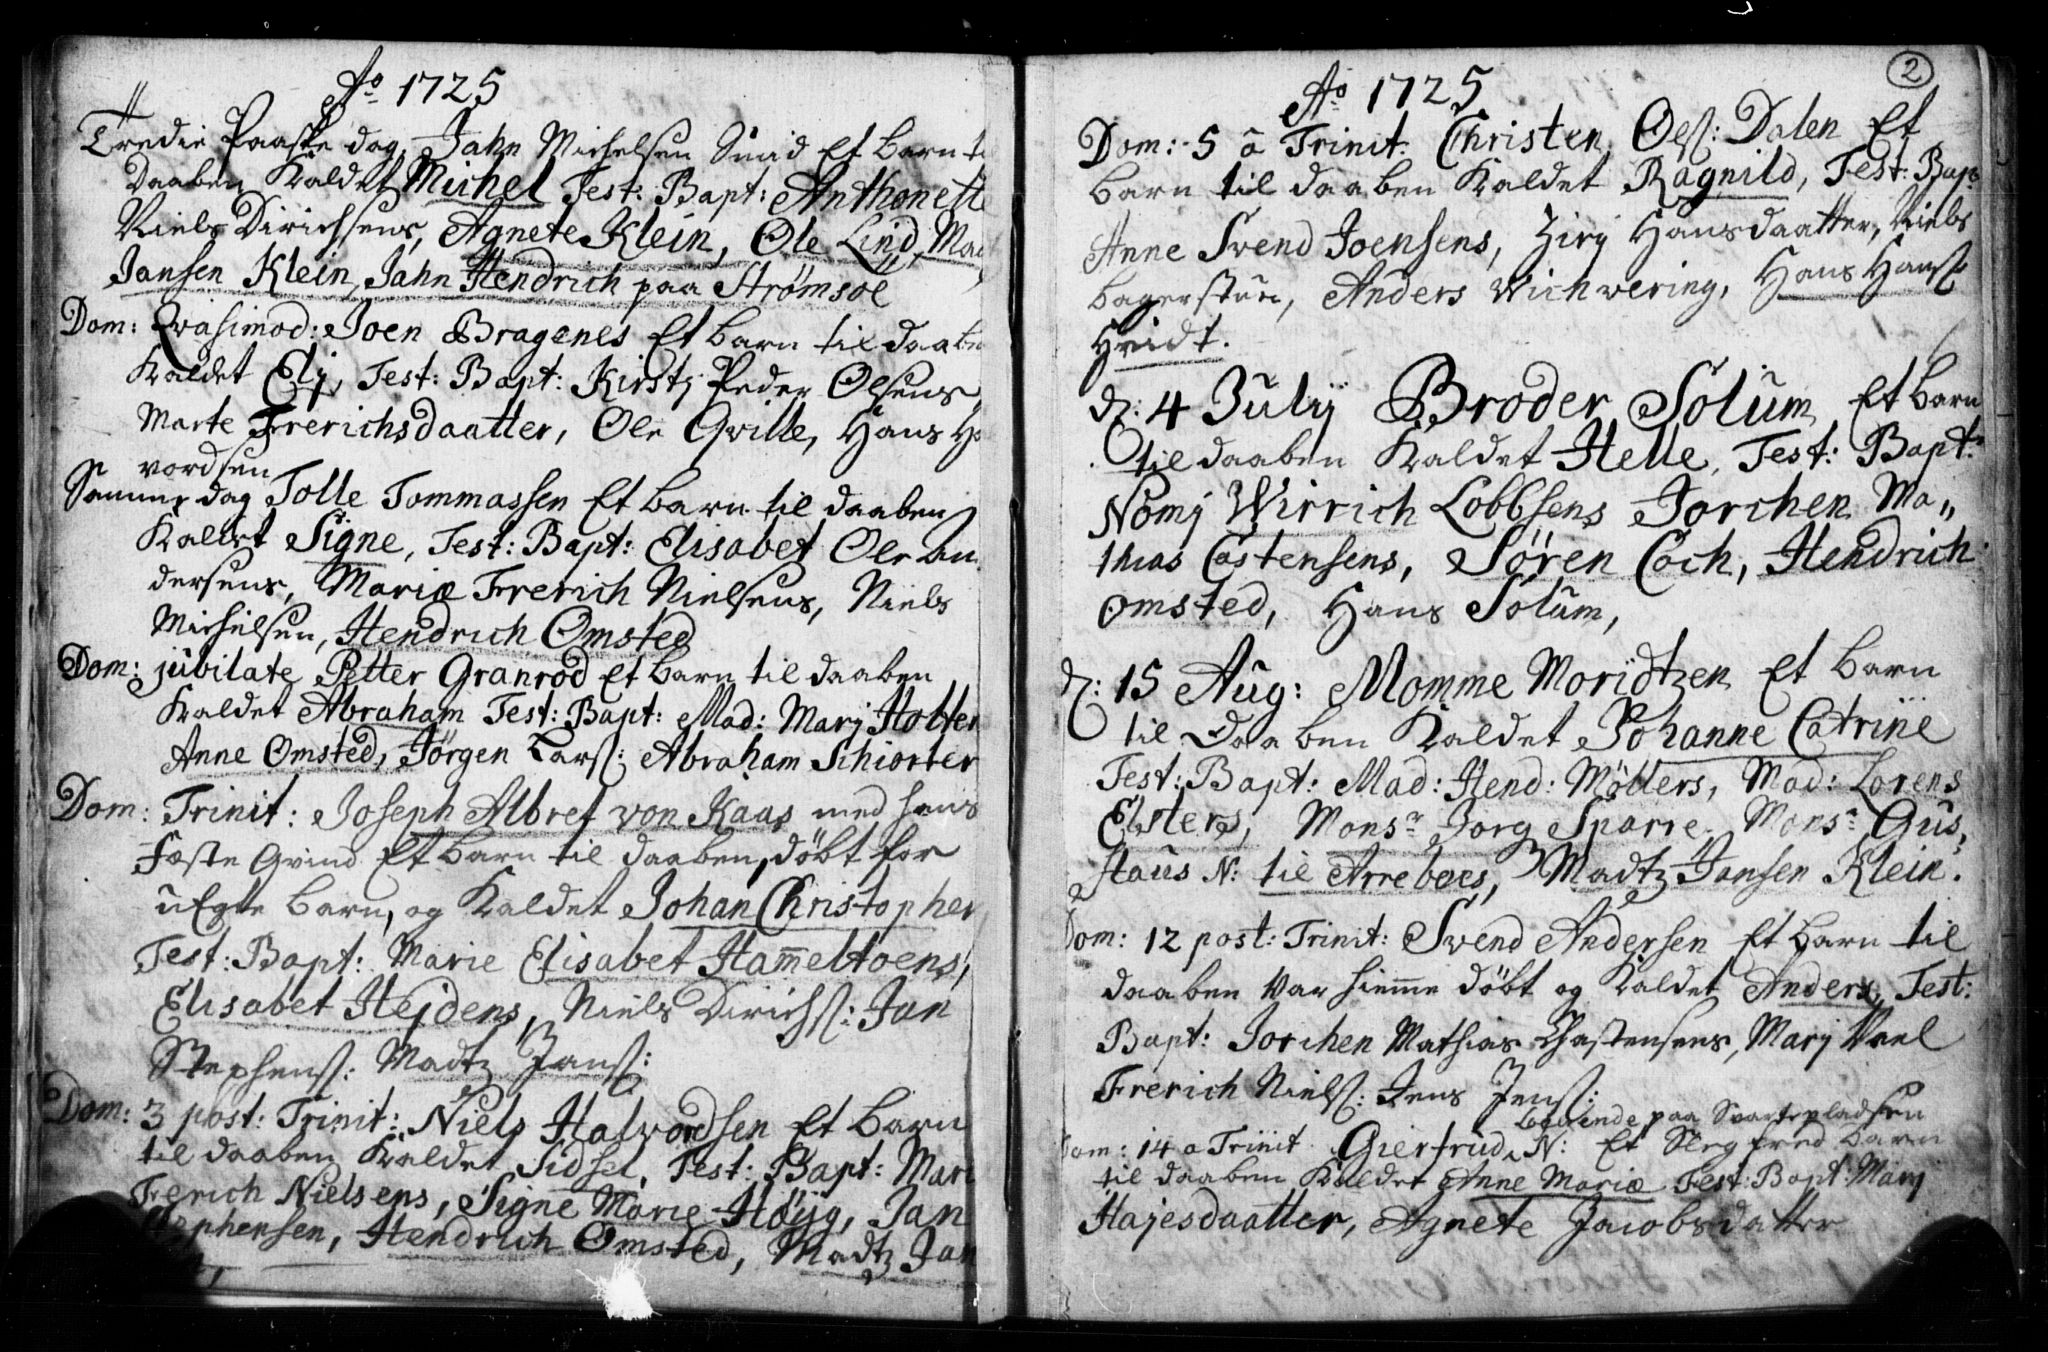 Ao 1725
Tredie Paaske dag, Jahn Michelsen Smid Et barn
Daaben Kaldet Michel Test: Bapt: Anthonett
Niels Dirichsens, Agnete Klein, Ole Lind, Mad
Jansen Klein, Jahn Hendrich paa Strømsoe
Dom: Qvasimod: Joen Bragenes Et barn til daaben
Kaldet Elj, Test: Bapt: Kirstj Peder Olsens,
Marte Frerichsdaatter, Ole Qville, Hans
vordsen
Samme dag Tolle Tommassen Et barn til daaben
Kaldet Signe, Test: Bapt: Elisabet Ole An
dersens, Mariæ Frerich Nielsens, Niels
Michelsen, Hendrich Omsted
Dom: jubilate Petter Granrod Et barn til daaben
Kaldet Abraham Test: Bapt: Mad: Marj Holter
Anne Omsted, Jörgen Larss: Abraham Schiorter
Dom: Trinit: Joseph Albret von Kaas med hans
Fæste Qvind Et barn til daaben, döbt for
uEgte barn, og Kaldet Johan Christopher
Test: Bapt: Marie Elisabet Ham̄eltoens,
Elisabet Hejdens, Niels Dirichss: Jan
Stephenss: Madtz Janss:
Dom: 3 post: Trinit: Niels Halvordsen Et barn
til daaben Kaldet Sidsel, Test: Bapt: Mari
Frerich Nielsens, Signe Marie Höyg, Jan
Stephensen, Hendrich Omsted, Madtz Jan
2
Ao 1725
Dom: 5 a Trinit. Christen Olss: Dalen Et
barn til daaben Kaldet Ragnild, Test: Bapt
Anne Svend Joensens, Zirj Hansdaatter, Niels
bagerstun, Anders Wichwering, Hans Hanss
Hvidt.
d: 4 Julij Broder Solum Et barn
til daaben Kaldet Helle, Test: Bapt:
Nömj Wirrich Lobbsens Jorchen Ma,,
thias Castensens, Sören Coch, Hendrich
Omsted, Hans Solum,
d: 15 Aug: Momme Moridtzen Et barn
til Daaben Kaldet Johanne Catrine
Test: Bapt: Mad: Hend: Möllers, Mad: Lorens
Elsters, Monsr Jorg Sparre Monsr: Gus,
staus N: til Arreboes, Madtz Jansen Klein.
Dom: 12 post: Trinit: Svend Andersen Et barn til
daaben Var hiem̄e döbt og Kaldet Anders, Test:
Bapt: Jorchen Mathias Chastensens, Marj Vael
Frerich Nielss: Jens Jenss:
boeende paa Svartepladsen
Dom: 14 a Trinit Giertrud N: Et Slegfred barn
til daaben Kaldet Anne Mariæ Test: Bapt: Marj
Hajesdaatter, Agnete Jacobsdatter